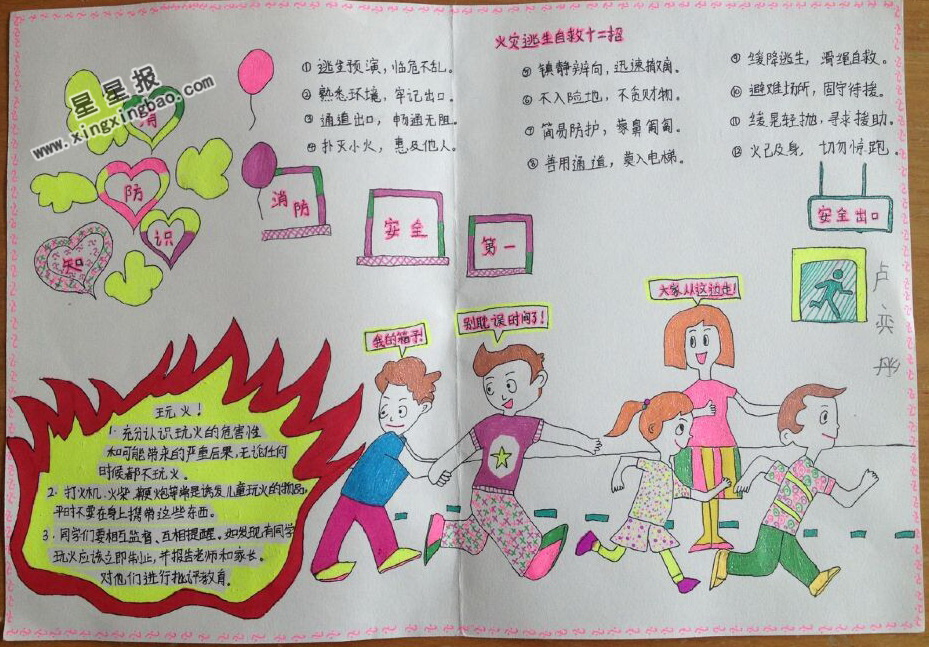 星星报
www.xingxingbao.com
消
防
知
识
消防
安全
第一
火灾逃生自救十二招
① 逃生预演，临危不乱。
② 熟悉环境，牢记出口。
③ 通道出口，畅通无阻。
④ 扑灭小火，惠及他人。
⑤ 镇静辨向，迅速撤离。
⑥ 不入险地，不贪财物。
⑦ 简易防护，蒙鼻匍匐。
⑧ 善用通道，莫入电梯。
⑨ 缓降逃生，滑绳自救。
⑩ 避难场所，固守待援。
⑪ 缓晃轻抛，寻求援助。
⑫ 火已及身，切勿惊跑。
安全出口
卢奕彤
我的箱子!
别耽误时间了!
大家从这边走!
玩火！
1. 充分认识玩火的危害性
和可能带来的严重后果，无论任何
时候都不玩火。
2. 打火机、火柴、鞭炮等常是诱发儿童玩火的物品，
平时不要在身上携带这些东西。
3. 同学们要相互监督、互相提醒。如发现有同学
玩火应该立即制止，并报告老师和家长。
对他们进行批评教育。